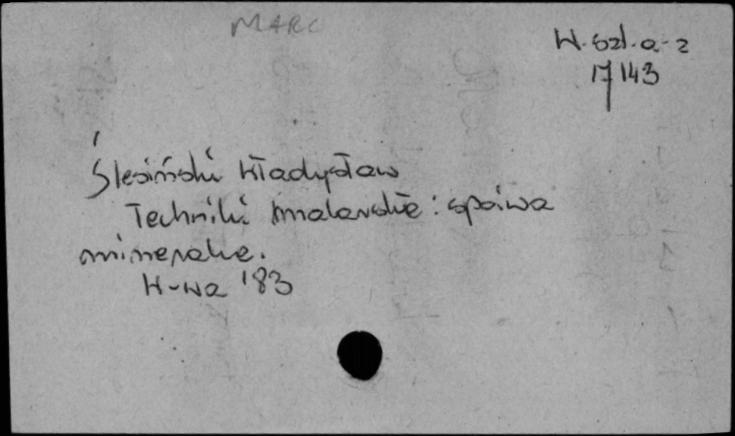 MARC
W. szt. a-z
17143
Ślesiński Władysław
Techniki malarskie: spoiwa
mineralne.
W-wa '83